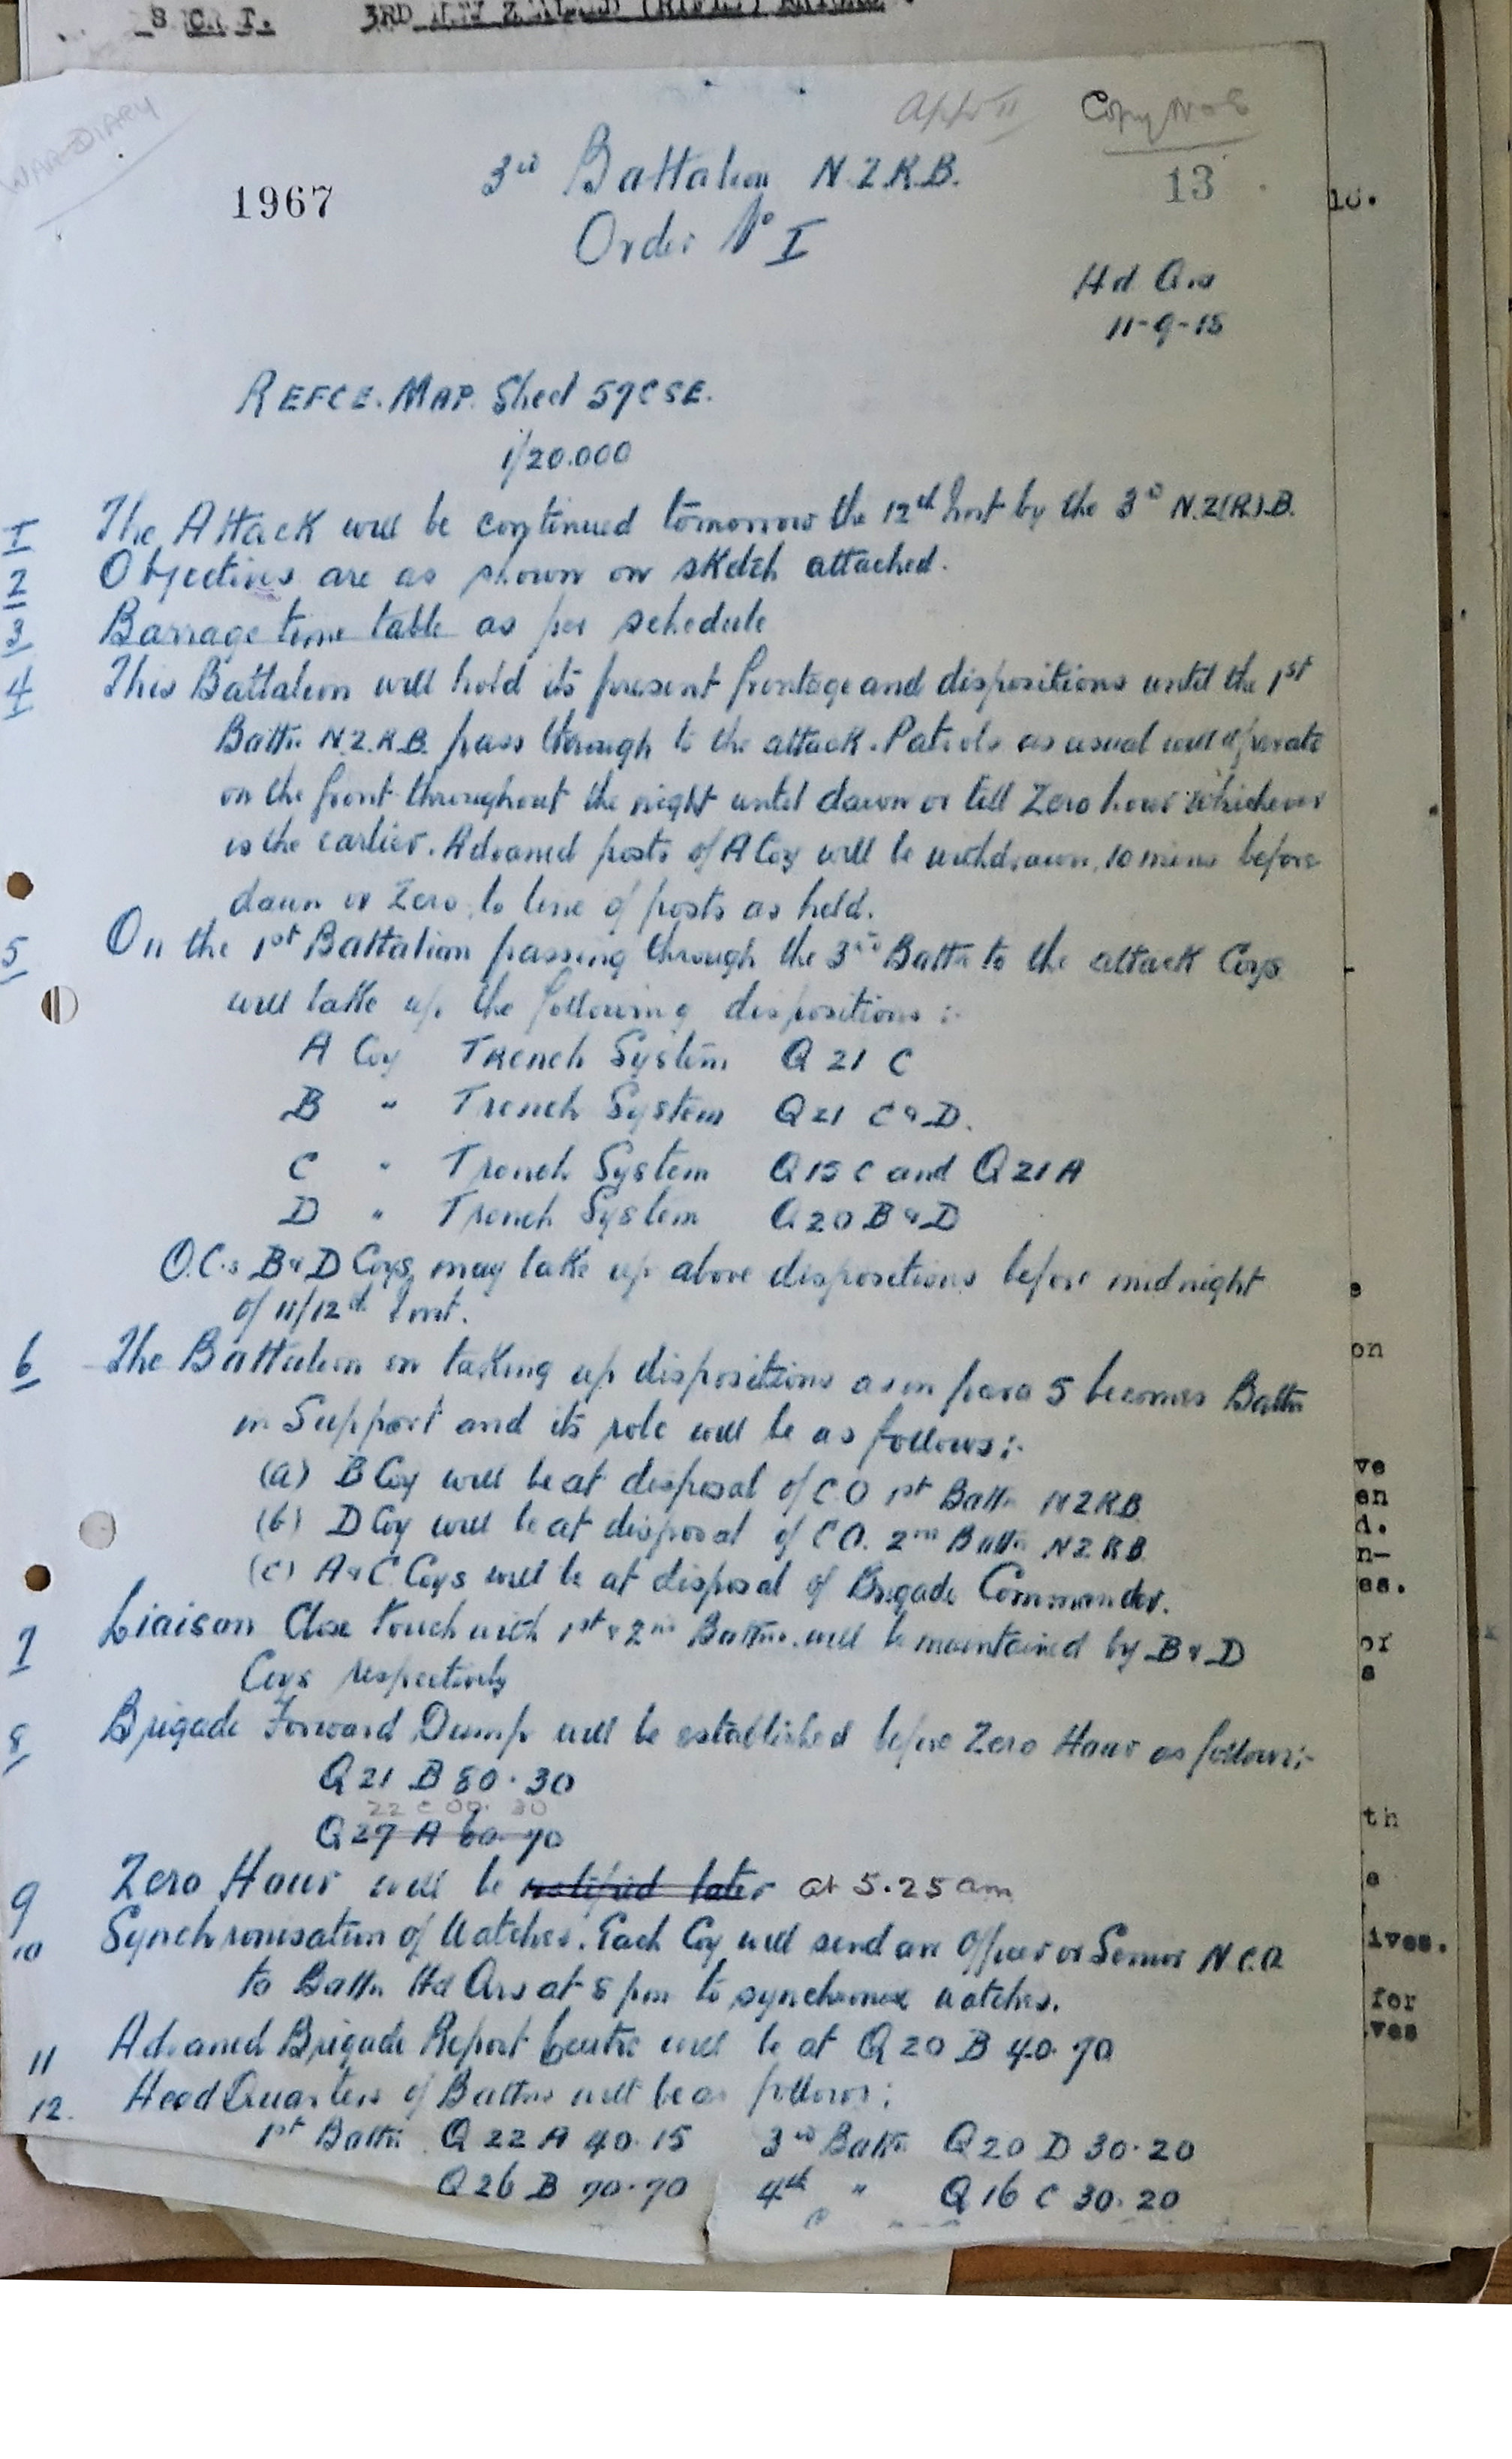 WAR DIARY
App II Copy No 8
3rd Battalion N.Z.R.B.
1967
13
Order No I
Hd Qrs
11-9-18
REFCE. MAP. Sheet 57C SE.
1/20.000
I The Attack will be continued tomorrow the 12th Inst by the 3rd N.Z.(R).B.
2 Objectives are as shown on sketch attached.
3 Barrage time table as per schedule
4 This Battalion will hold its present frontage and dispositions until the 1st
Battn N.Z.R.B. pass through to the attack. Patrols as usual will operate
on the front throughout the night until dawn or till Zero hour whichever
is the earlier. Advanced posts of A Coy will be withdrawn, 10 mins before
dawn or Zero, to line of posts as held.
5 On the 1st Battalion passing through the 3rd Battn to the attack Coys
will take up the following dispositions :-
A Coy Trench System Q 21 C
B " Trench System Q 21 C & D.
C " Trench System Q 15 C and Q 21 A
D " Trench System Q 20 B & D
O.C.s B & D Coys may take up above dispositions before midnight
of 11/12th Inst.
6 The Battalion on taking up dispositions as in para 5 becomes Battn
in Support and its role will be as follows :-
(a) B Coy will be at disposal of C.O 1st Battn N Z R B.
(b) D Coy will be at disposal of C.O. 2nd Battn N Z R B.
(c) A & C Coys will be at disposal of Brigade Commander.
7 Liaison Close touch with 1st & 2nd Battns. will be maintained by B & D
Coys respectively
8 Brigade Forward Dump will be established before Zero Hour as follows :-
Q 21 B 80.30
22 C 00. 30
Q 27 A 60.70
9 Zero Hour will be notified later at 5.25 am
10 Synchronisation of Watches. Each Coy will send an Officer or Senior N.C.O.
to Battn Hd Qrs at 8 pm to synchronise watches.
11 Advanced Brigade Report Centre will be at Q 20 B 40.70
12. Head Quarters of Battns will be as follows :
1st Battn Q 22 A 40.15 3rd Battn Q 20 D 30.20
Q 26 B 70.70 4th " Q 16 C 30.20
on
ve
en
d.
n-
es.
or
s
th
e
ives.
for
ves